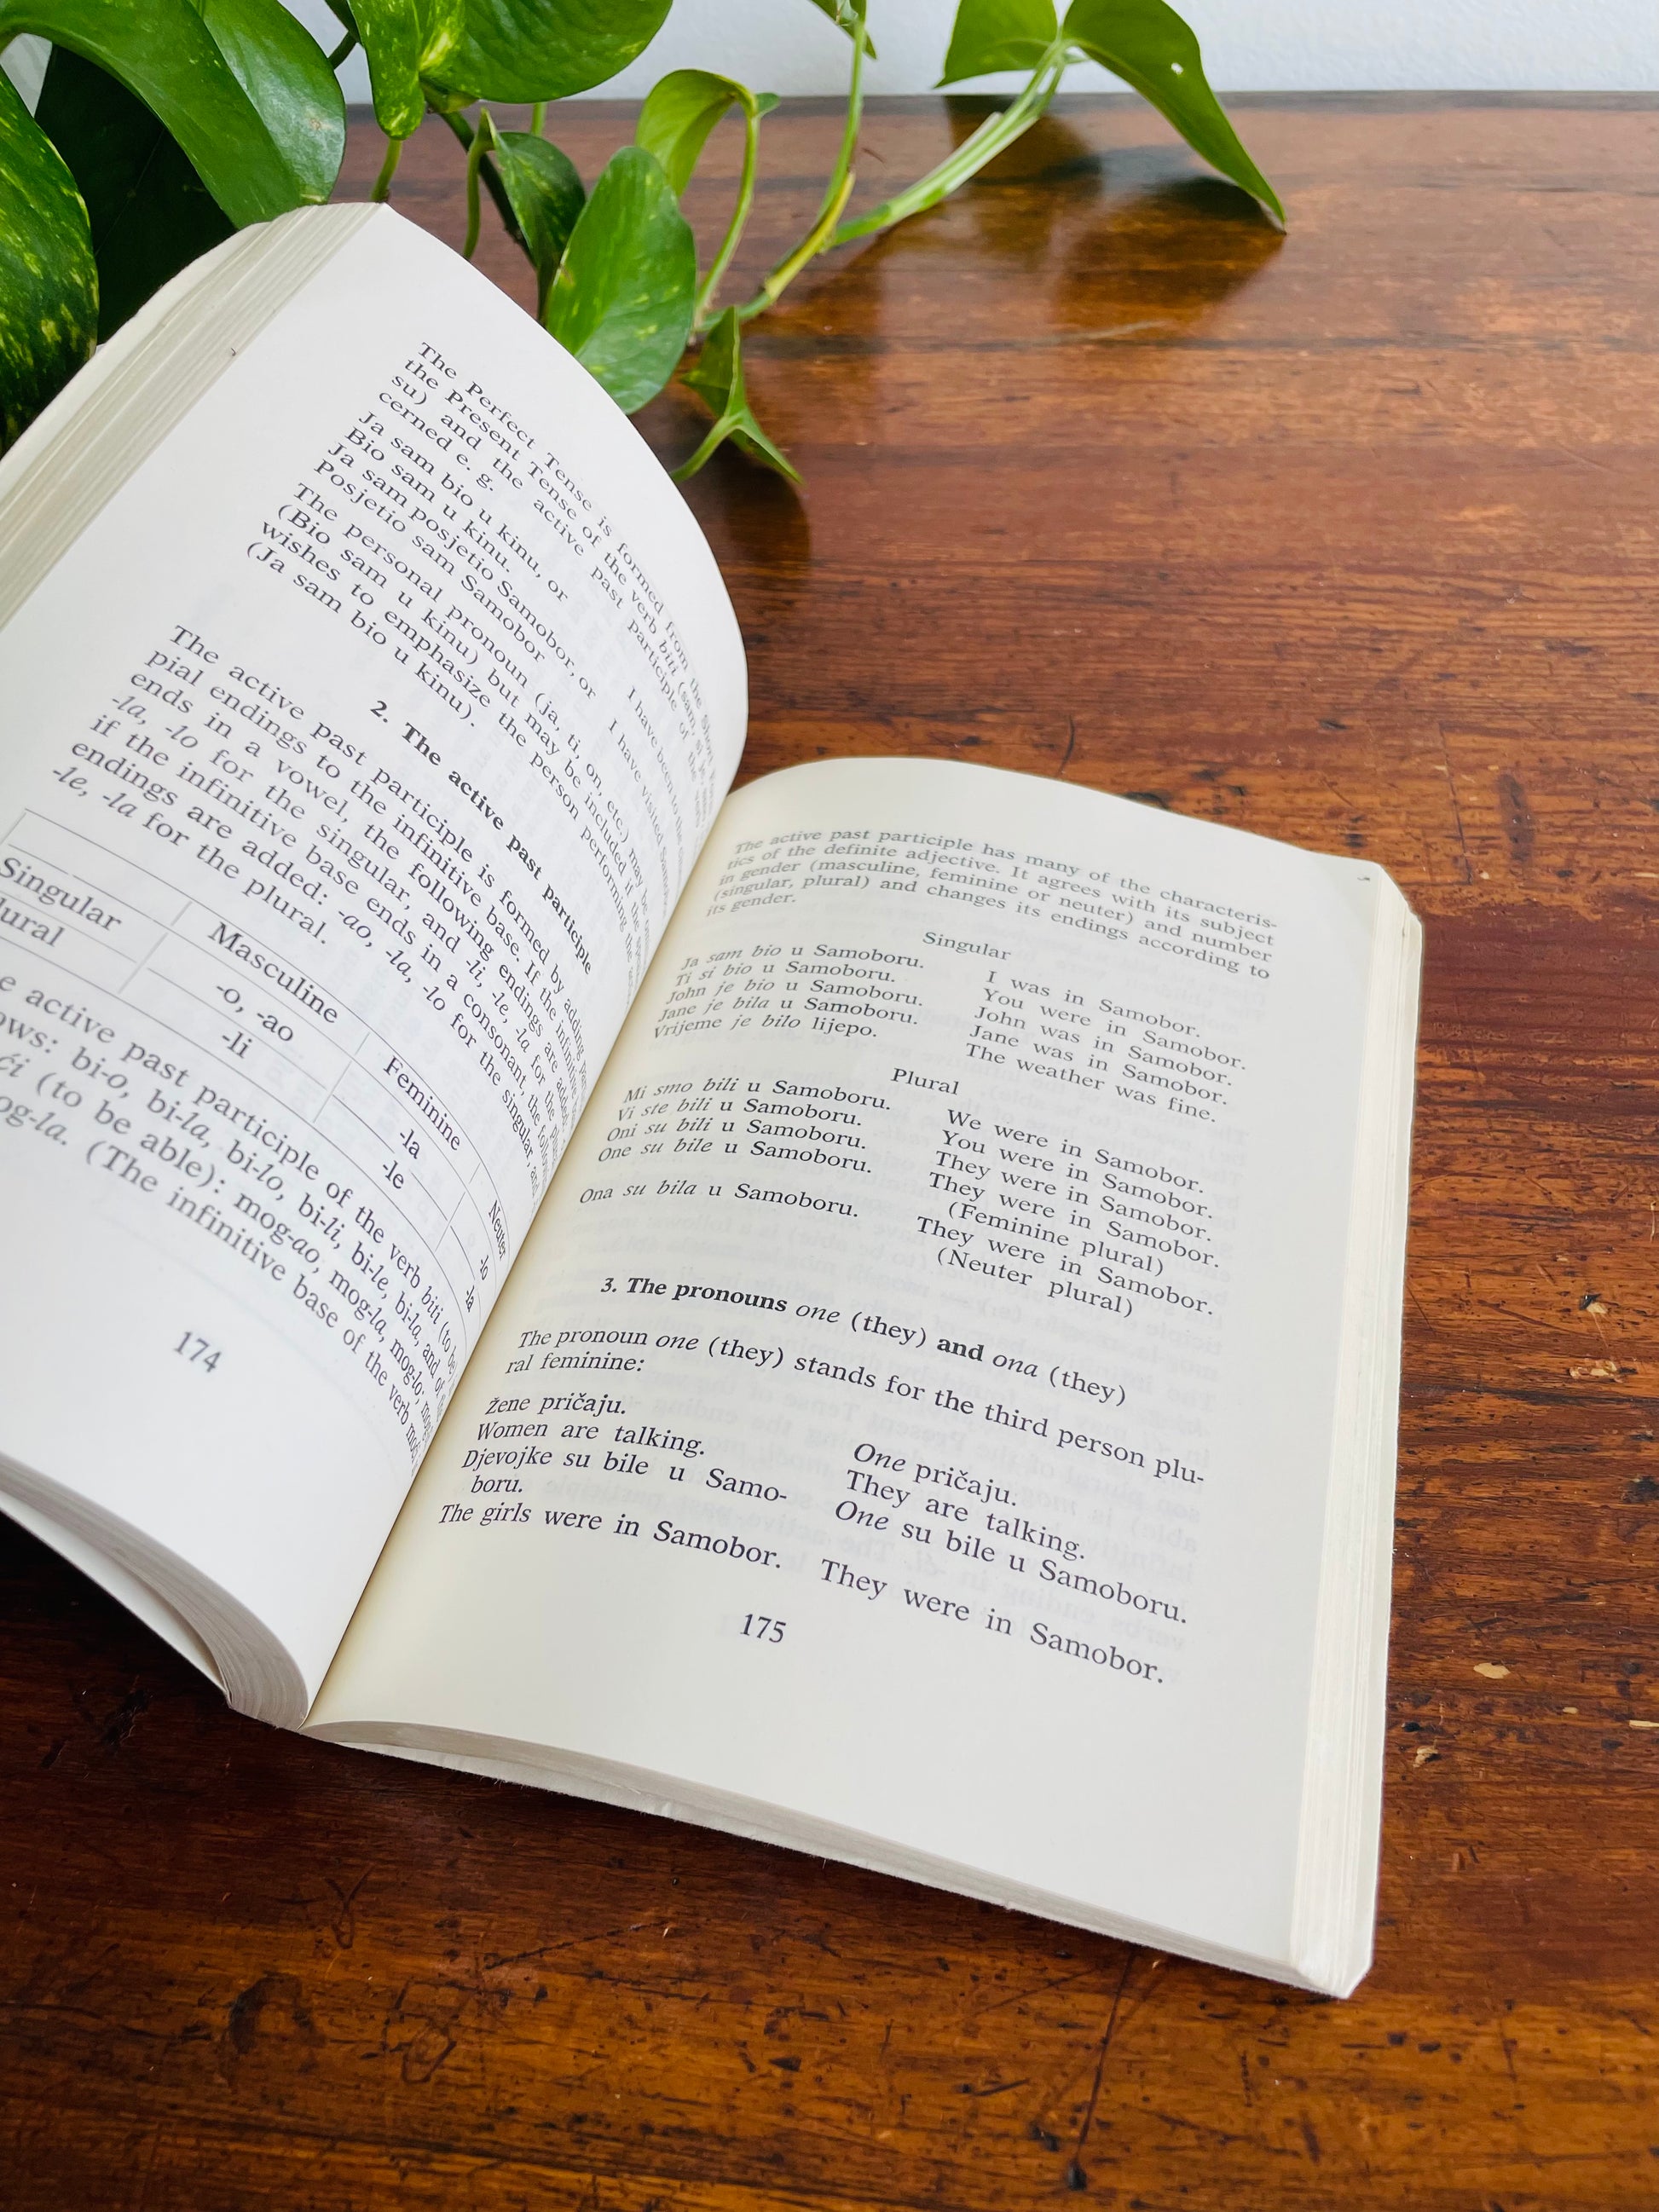 The Perfect Tense is formed from the Short
the Present Tense of the verb biti (sam, si, je,
su) and the active past participle of the
cerned e. g.
Ja sam bio u kinu, or
Bio sam u kinu. I have been to the
Ja sam posjetio Samobor, or
Posjetio sam Samobor I have visited Samobor
The personal pronoun (ja, ti, on, etc.) may be
(Bio sam u kinu) but may be included if the
wishes to emphasize the person performing the
(Ja sam bio u kinu).
2. The active past participle
The active past participle is formed by adding
pial endings to the infinitive base. If the infinitive
ends in a vowel, the following endings are added:
-la, -lo for the singular, and -li, -le, -la for the
if the infinitive base ends in a consonant, the
endings are added: -ao, -la, -lo for the singular, and
-le, -la for the plural.
Masculine Feminine Neuter
Singular -o, -ao -la -lo
lural -li -le -la
e active past participle of the verb biti (to be)
ows: bi-o, bi-la, bi-lo, bi-li, bi-le, bi-la, and of
ći (to be able): mog-ao, mog-la, mog-lo;
og-la. (The infinitive base of the verb moći
174
The active past participle has many of the characteris-
tics of the definite adjective. It agrees with its subject
in gender (masculine, feminine or neuter) and number
(singular, plural) and changes its endings according to
its gender.
Singular
Ja sam bio u Samoboru. I was in Samobor.
Ti si bio u Samoboru. You were in Samobor.
John je bio u Samoboru. John was in Samobor.
Jane je bila u Samoboru. Jane was in Samobor.
Vrijeme je bilo lijepo. The weather was fine.
Plural
Mi smo bili u Samoboru. We were in Samobor.
Vi ste bili u Samoboru. You were in Samobor.
Oni su bili u Samoboru. They were in Samobor.
One su bile u Samoboru. They were in Samobor.
(Feminine plural)
Ona su bila u Samoboru. They were in Samobor.
(Neuter plural)
3. The pronouns one (they) and ona (they)
The pronoun one (they) stands for the third person plu-
ral feminine:
Žene pričaju. One pričaju.
Women are talking. They are talking.
Djevojke su bile u Samo- One su bile u Samoboru.
boru.
The girls were in Samobor. They were in Samobor.
175